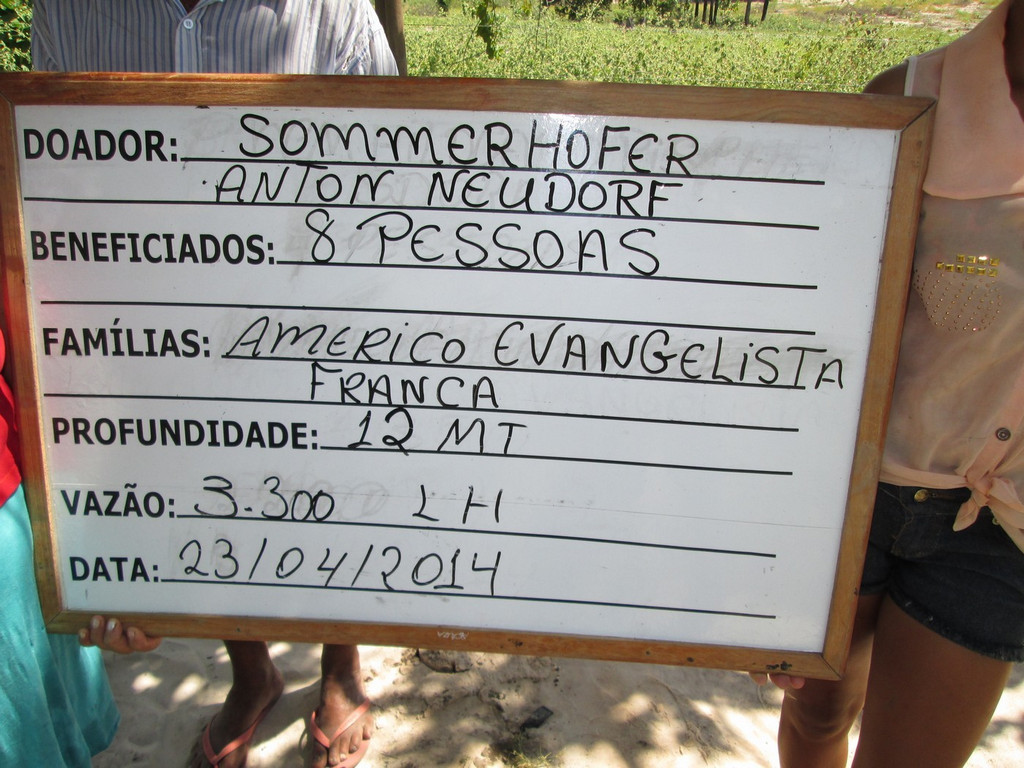 DOADOR: SOMMERHOFER
ANTON NEUDORF
BENEFICIADOS: 8 PESSOAS
FAMÍLIAS: AMERICO EVANGELISTA
FRANCA
PROFUNDIDADE: 12 MT
VAZÃO: 3.300 LH
DATA: 23/04/2014